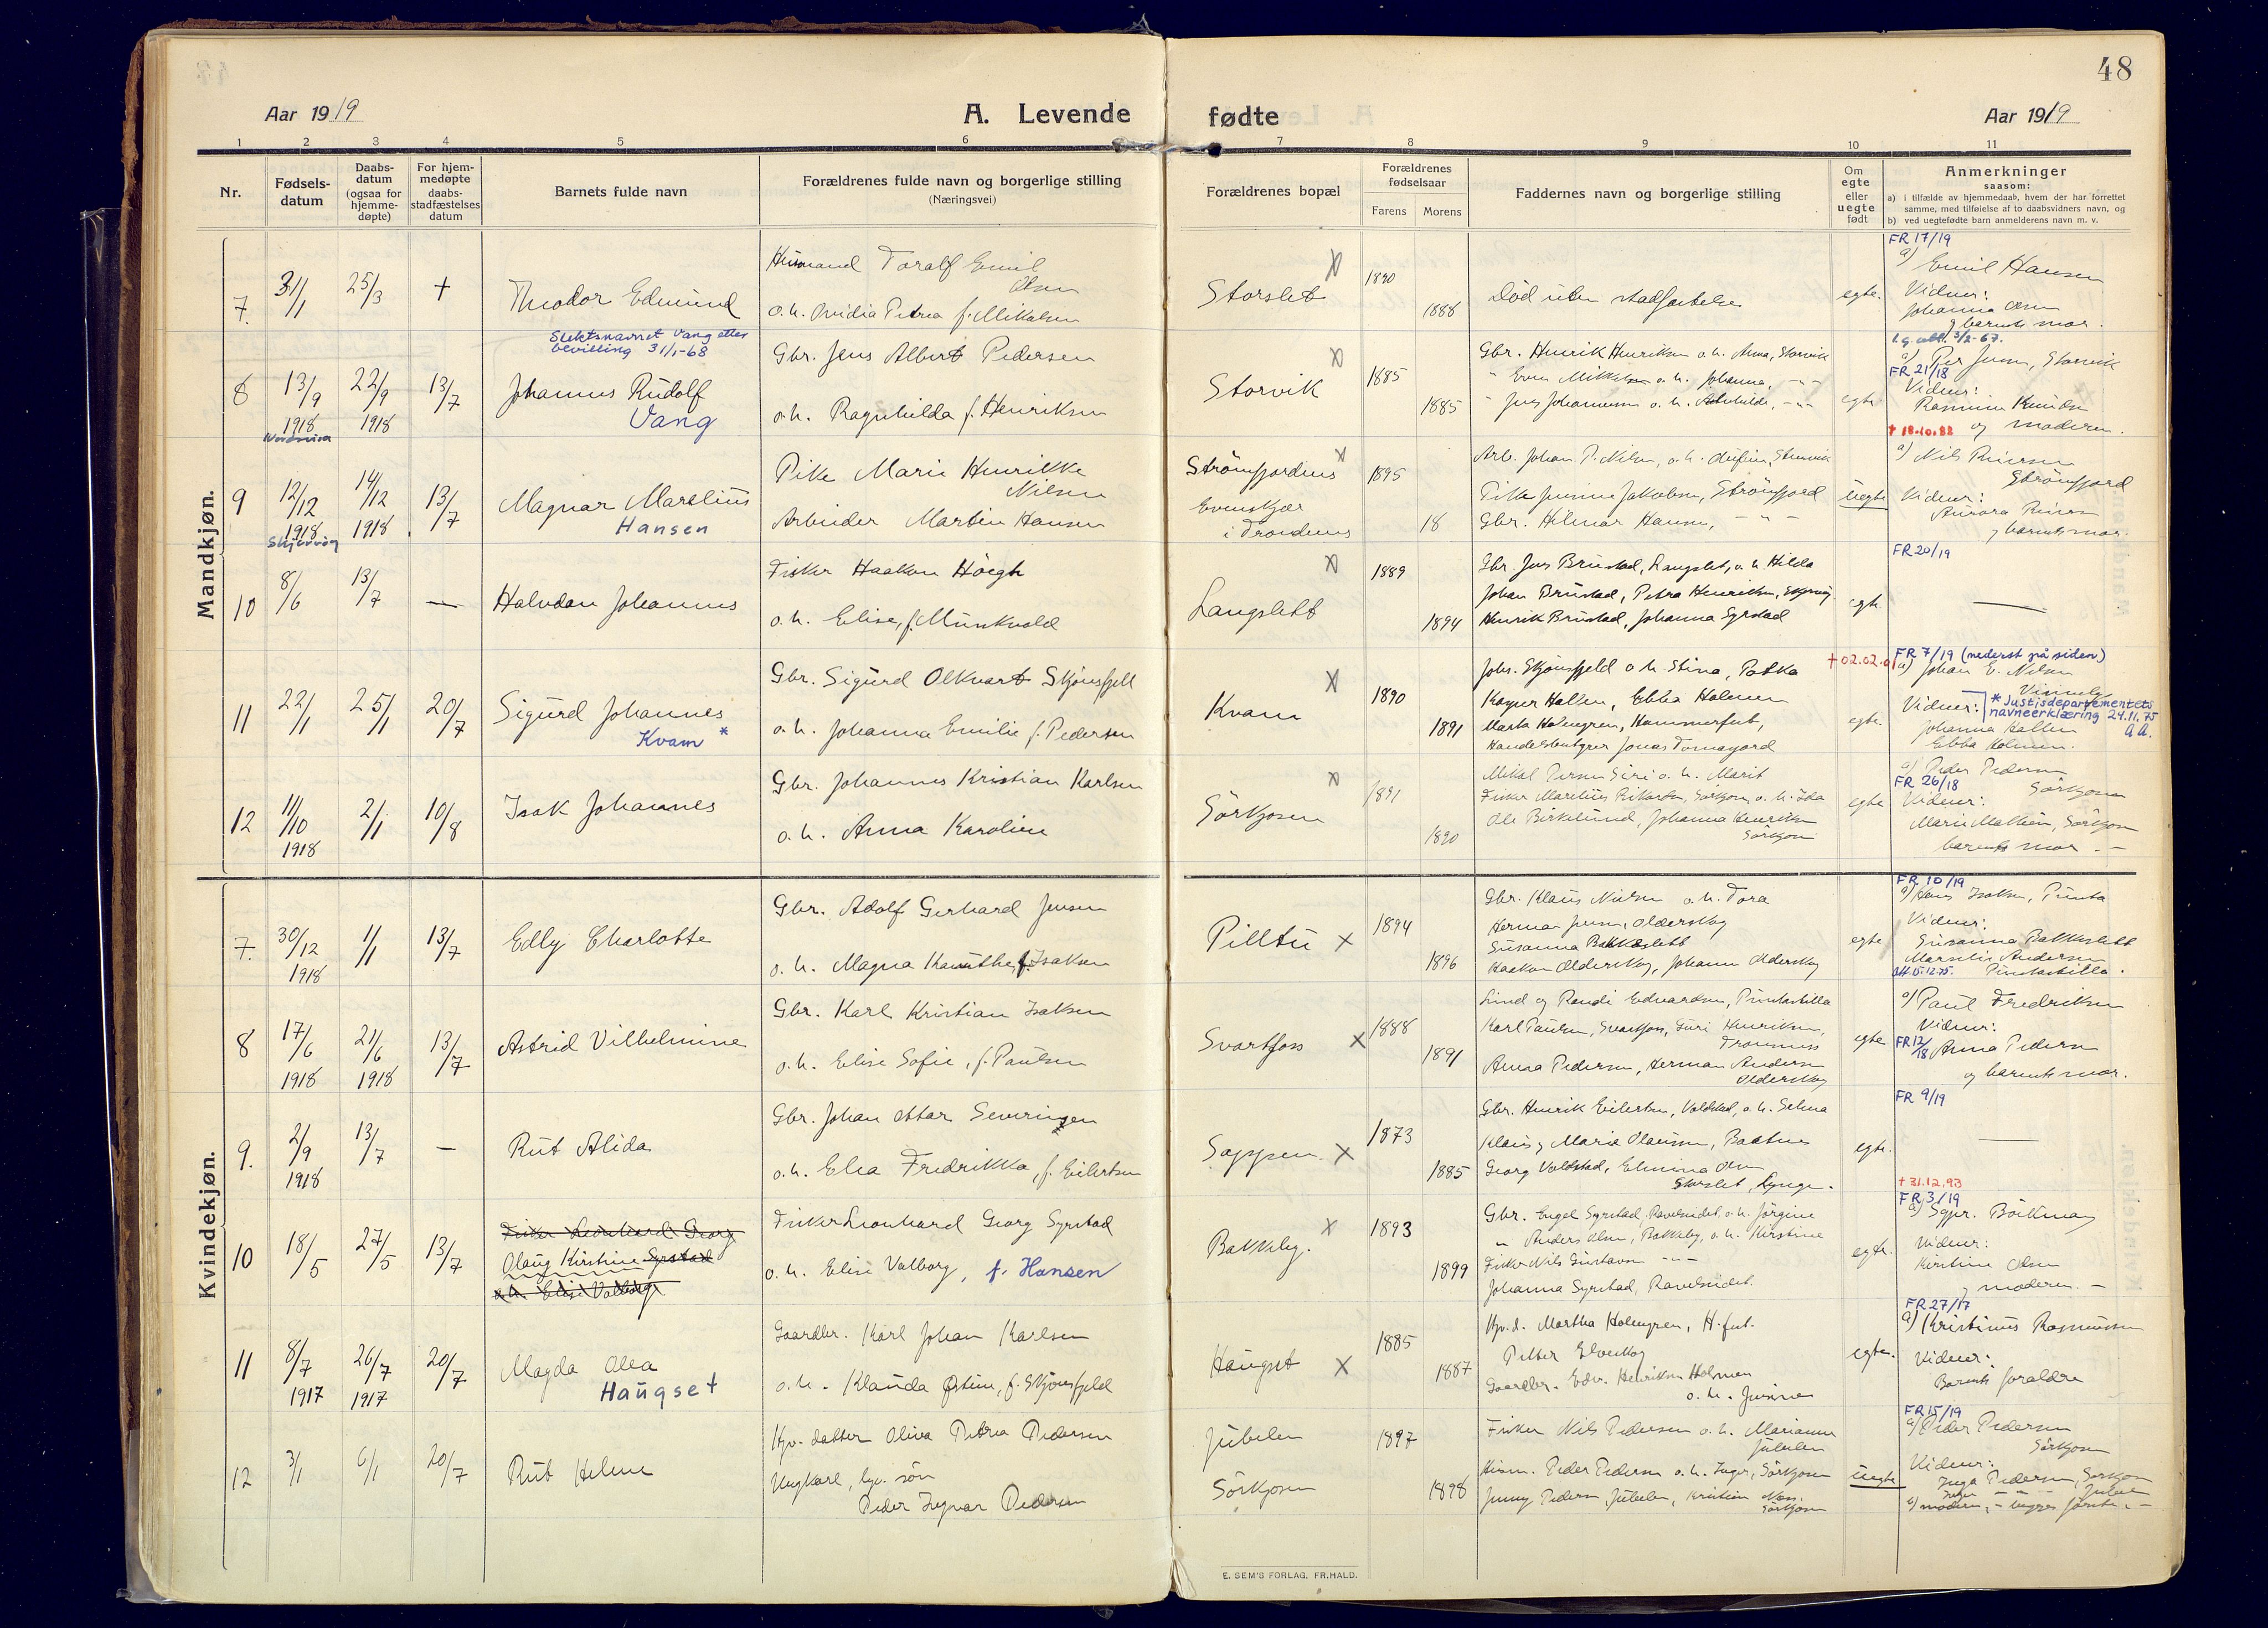 48
Aar 1919
A. Levende
fødte
Aar 1919
1 2 3 4 5 6 7 8 9 10 11
Nr.
Fødsels-
datum
Daabs-
datum
(ogsaa for
hjemme-
døpte)
For hjem-
medøpte
daabs-
stadfæstelses
datum
Barnets fulde navn
Forældrenes fulde navn og borgerlige stilling
(Næringsvei)
Forældrenes bopæl
Forældrenes
fødselsaar
Farens Morens
Faddernes navn og borgerlige stilling
Om
egte
eller
uegte
født
Anmerkninger
saasom:
a) i tilfælde av hjemmedaab, hvem der har forrettet
samme, med tilføielse af to daabsvidners navn, og
b) ved uegtefødte barn anmelderens navn m. v.
Mandkjøn.
7. 31/1 25/3 + Theodor Edmund
Husmand Toralf Emil
Olsen
o.h. Ovidia Petrea f. Mikalsen
Storslet X 1890
1888
Død uten stadfæstelse
egte.
FR 17/19
a) Emil Hansen
Vidner:
Johanna Olsen
og barnets mor.
Slektsnavnet Vang etter
bevilling 31/1-68
8 13/9 1918 22/9 1918 13/7 Johannes Rudolf
Vang
Gbr. Jens Albert Pedersen
o.h. Ragnhilda f. Henriksen
Storvik X 1885
1885
Gbr. Henrik Henriksen o.h. Anna, Storvik
" Even Mikkelsen o.h. Johanna, - " -
" Jens Johannesen o.h.
egte
3/2-67.
a) Per Jensen, Storvik
FR 21/18
Vidner:
Rasmine Knudsen
og moderen.
† 18.10.82
9 12/12 1918 14/12 1918. 13/7 Magnar Marelius
Hansen
Pike Marie Henrikke
Nilsen
Arbeider Martin Hansen
Strömfjordnes X 1895
Evenskjær
i Trondenes
18
Arb. Johan P. Nilsen, o.h.
Pike Jensine Jakobsen, Strömfjord
Gbr. Hilmar Hansen, - " -
uegte
a) Nils Reiersen
Strömfjord
Vidner:
Aurora Reiersen
og barnets mor.
10 8/6 13/7 — Halvdan Johannes
Fisker Haakon Höegh
o.h. Elise, f. Munkvold
Langslett X 1889
1894
Gbr. Jens Brustad, Langslet, o.h. Hilda
Johan Brustad, Petra Henriksen,
Henrik Brustad, Johanna Syrstad
egte
FR 20/19
—
11 22/1 25/1 20/7 Sigurd Johannes
Kvam *
Gbr. Sigurd Olkvart Skjönsfjell
o.h. Johanna Emilie f. Pedersen
Kvam X 1890
1891
Johs. Skjönsfjeld o.h. Stina, Potka
Kasper Hallen, Ebba Holmen
Marta Holmgren, Hammerfest,
Handelsbetyrer Jonas
egte.
† 02.02.01
FR 7/19 (nederst på siden)
a) Johan E. Nilsen
Vidner:
* Justisdepartementets
navneerklæring 24.11.75
Johanna Hallen
Ebba Holmen.
12 11/10 1918 2/1 10/8 Isak Johannes
Gbr. Johannes Kristian Karlsen
o.h. Anna Karoline
Sörkjosen X 1891
1890
Mikal Persen Siri o.h. Marit
Fisker Marelius Rikardsen, Sörkjosen, o.h. Ida
Ole Birkelund, Johanna Henriksen
Sörkjosen
egte
a) Peder Pedersen
FR 26/18 Sörkjosen
Vidner:
Marie Mathisen, Sörkjosen
barnets mor - " -
Kvindekjøn.
7. 30/12 1918 1/1 13/7 Edly Charlotte
Gbr. Adolf Gerhard Jensen
o.h. Magna Kamithe f. Isaksen
Pilltu X 1894
1896
Gbr. Klaus Nilsen o.h. Tora
Herman Jensen, Olderskog
Susanna Bakkeslett
Haakon Olderskog, Johann Olderskog
egte
FR 10/19
a) Hans Isaksen, Punta
Vidner:
Susanna Bakkeslett
Marselie Andersen
15.12.75.
8 17/6 1918 21/6 1918 13/7 Astrid Vilhelmine
Gbr. Karl Kristian Isaksen
o.h. Elise Sofie, f. Paulsen
Svartfoss X 1888
1891
Lind og Randi Edvardsen,
Karl Paulsen, Svartfoss, Guri Henriksen,
Anna Pedersen, Herman Andersen
Olderskog
egte
a) Paul Fredriksen
Vidner:
FR 12/18 Anna Pedersen
og barnets mor.
9. 2/9 1918 13/7 — Rut Alida
Gbr. Johan Ottar Severinsen
o.h. Elea Fredrikka, f. Eilertsen
Sappen X 1873
1885
Gbr. Henrik Eilertsen, Voldstad, o.h. Selma
Klaus og Marie Olaussen, Baatnes
Georg Voldstad, Elmina Olsen
Storslet, Lyngen.
egte.
FR 9/19
—
10 18/5 27/5 13/7
Fisker Leonhard Georg
Olaug Kirstine Syrstad
o.h. Elise Valborg
Fisker Leonhard Georg Syrstad
o.h. Elise Valborg, f. Hansen
Bakkeby. X 1893
1899
Gbr. Engel Syrstad, Ravelseidet, o.h. Jörgine
" Anders Olsen, Bakkeby, o.h. Kirstine
Fisker Nils Gustavsen - " -
Johanna Syrstad, Ravelseidet.
egte.
† 31.12.93
FR 3/19
a) Sgpr. Böckman
Vidner:
Kirstine Olsen
og moderen. -
11 8/7 1917 26/7 1917 20/7 Magda Olea
Haugset
Gaardbr. Karl Johan Karlsen
o.h. - Klauda Østine, f. Skjönsfjeld
Haugset X 1885
1887
Kpv.d. Martha Holmgren, H.fest.
Petter Elvestog
Gaardbr. Edv. Henriksen Holmen
o.h. Jensine
egte.
FR 27/17
a) Kristinus Rasmussen
Vidner:
Barnets foraldre
12 3/1 6/1 20/7 Rut Helene
Kpv. datter Oliva Petrea Pedersen
Ungkarl, kpv. søn
Peder Ingvar Pedersen
Jubelen 1897
Sörkjosen 1898
Fisker Nils Pedersen o.h. Marianne
Jubelen
Husm. Peder Pedersen o.h. Inger, Sörkjosen
Jenny Pedersen, Jubelen, Kristian Næss.
Sörkjosen
uegte
FR 15/19
a) Peder Pedersen
Sörkjosen
Vidner:
Inga Pedersen, Sörkjosen
Inger - " - Jubelen
b) moderen, - begges første. -
E. SEM'S FORLAG, FR.HALD.